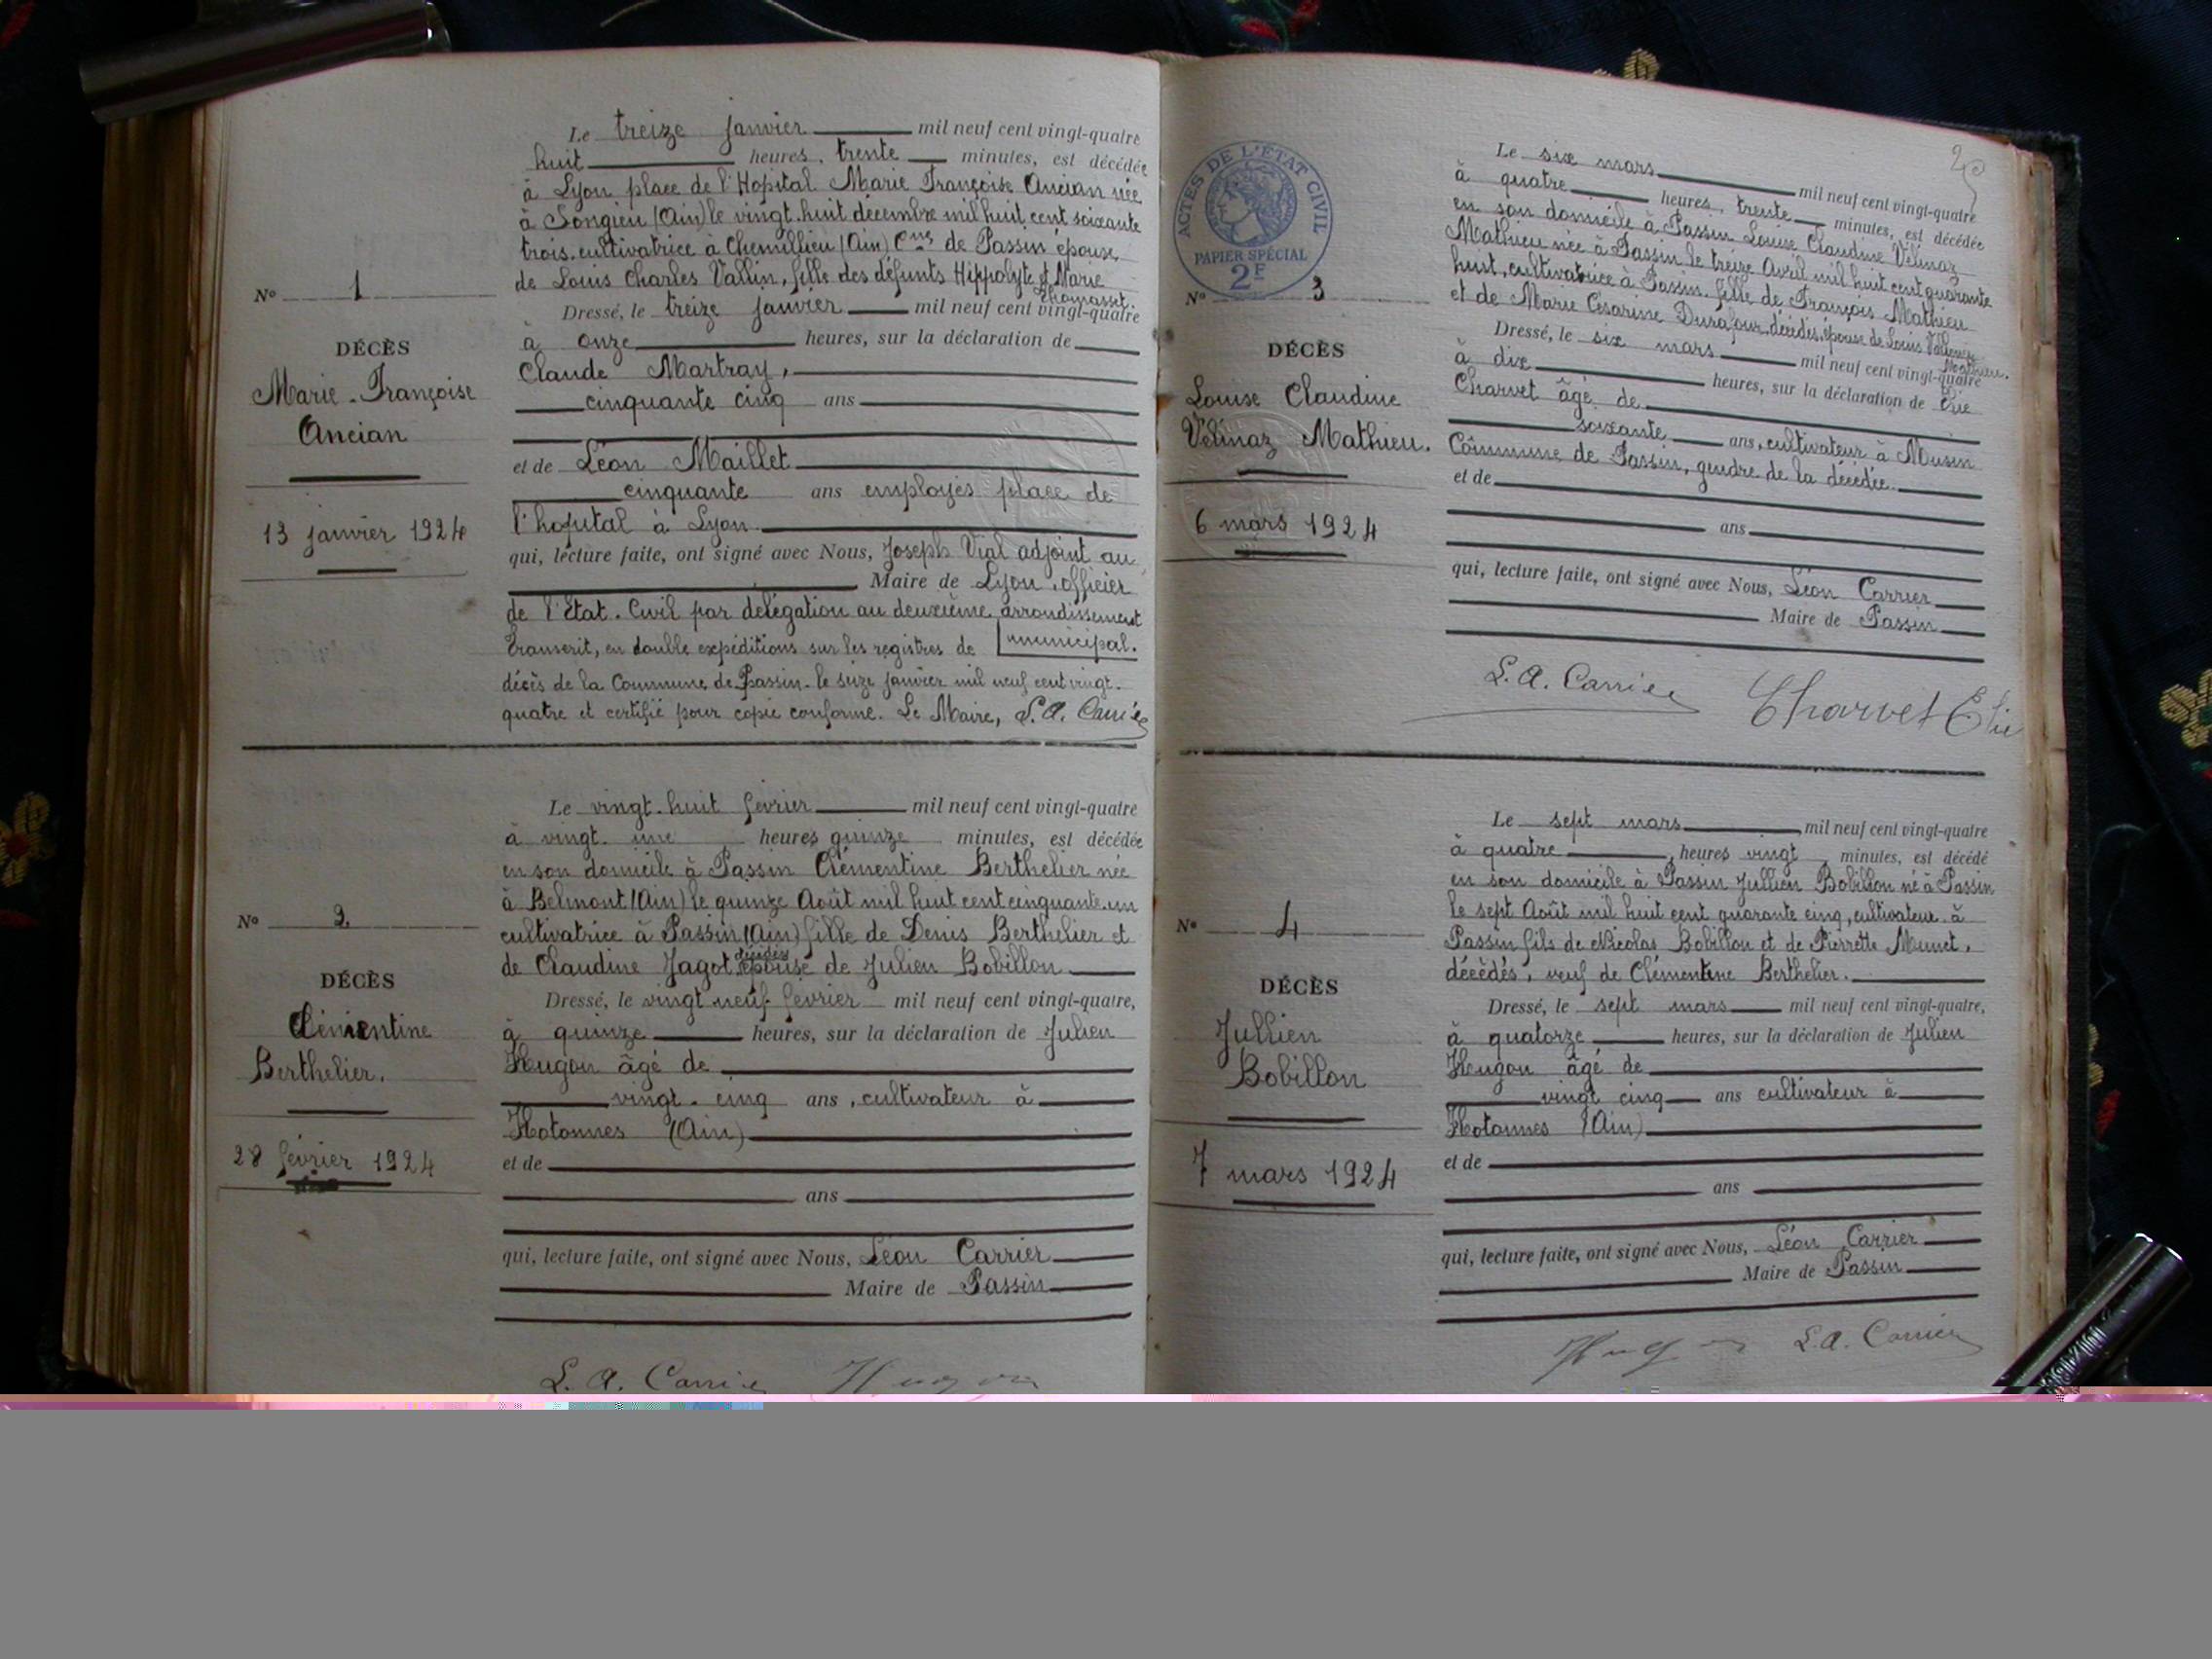 Le treize janvier mil neuf cent vingt-quatre
huit heures, trente minutes, est décédée
à Lyon place de l'Hopital Marie Françoise Ancian née
à Songieu (Ain) le vingt-huit décembre mil huit cent soixante
trois, cultivatrice à Chemillieu (Ain) Cne de Passin épouse
de Louis Charles Vallin, fille des défunts Hippolyte et Marie
Nº 1
Dressé, le treize janvier mil neuf cent vingt-quatre
à onze heures, sur la déclaration de
DÉCÈS
Claude Martray,
Marie-Françoise
cinquante cinq ans
Ancian
et de Léon Maillet
cinquante ans employés place de
13 janvier 1924
l'hopital à Lyon.
qui, lecture faite, ont signé avec Nous, Joseph Vial adjoint au
Maire de Lyon, officier
de l'Etat-Civil par délégation au deuxième arrondissement
municipal.
Transcrit, en double expéditions sur les registres de
décès de la Commune de Passin le seize janvier mil neuf cent vingt-
quatre et certifié pour copie conforme. Le Maire, L.A. Carrier
Le vingt-huit février mil neuf cent vingt-quatre
à vingt-une heures quinze minutes, est décédée
en son domicile à Passin Clémentine Berthelier née
à Belmont (Ain) le quinze Août mil huit cent cinquante-un
Nº 2
cultivatrice à Passin (Ain) fille de Denis Berthelier et
décédés
de Claudine Jagot épouse de Julien Bobillon
DÉCÈS
Dressé, le vingt-neuf février mil neuf cent vingt-quatre,
Clémentine
à quinze heures, sur la déclaration de Julien
Berthelier.
Hugon âgé de
vingt-cinq ans, cultivateur à
Hotonnes (Ain)
28 février 1924
et de
ans
qui, lecture faite, ont signé avec Nous, Léon Carrier
Maire de Passin
L. A. Carrier Hugon
25
ACTES DE L'ÉTAT CIVIL
PAPIER SPÉCIAL
2F
Le six mars mil neuf cent vingt-quatre
à quatre heures, trente minutes, est décédée
en son domicile à Passin Louise Claudine Velinaz
Mathieu née à Passin le treize Avril mil huit cent quarante
huit, cultivatrice à Passin, fille de François Mathieu
et de Marie Césarine Durafour, décédés, épouse de Louis
Mathieu.
Nº 3
Dressé, le six mars mil neuf cent vingt-quatre
DÉCÈS
à dix heures, sur la déclaration de Elie
Louise Claudine
Charvet âgé de
Velinaz Mathieu.
soixante ans, cultivateur à Musin
Commune de Passin, gendre de la décédée.
6 mars 1924
et de
ans
qui, lecture faite, ont signé avec Nous, Léon Carrier
Maire de Passin
L. A. Carrier Charvet Elie
Le sept mars mil neuf cent vingt-quatre
à quatre heures vingt minutes, est décédé
en son domicile à Passin Jullien Bobillon né à Passin
le sept Août mil huit cent quarante cinq, cultivateur à
Nº 4
Passin fils de Nicolas Bobillon et de Pierrette Munet,
décédés, veuf de Clémentine Berthelier.
DÉCÈS
Dressé, le sept mars mil neuf cent vingt-quatre,
Jullien
à quatorze heures, sur la déclaration de Julien
Bobillon
Hugon âgé de
vingt cinq ans cultivateur à
Hotonnes (Ain)
7 mars 1924
et de
ans
qui, lecture faite, ont signé avec Nous, Léon Carrier
Maire de Passin
Hugon L.A. Carrier